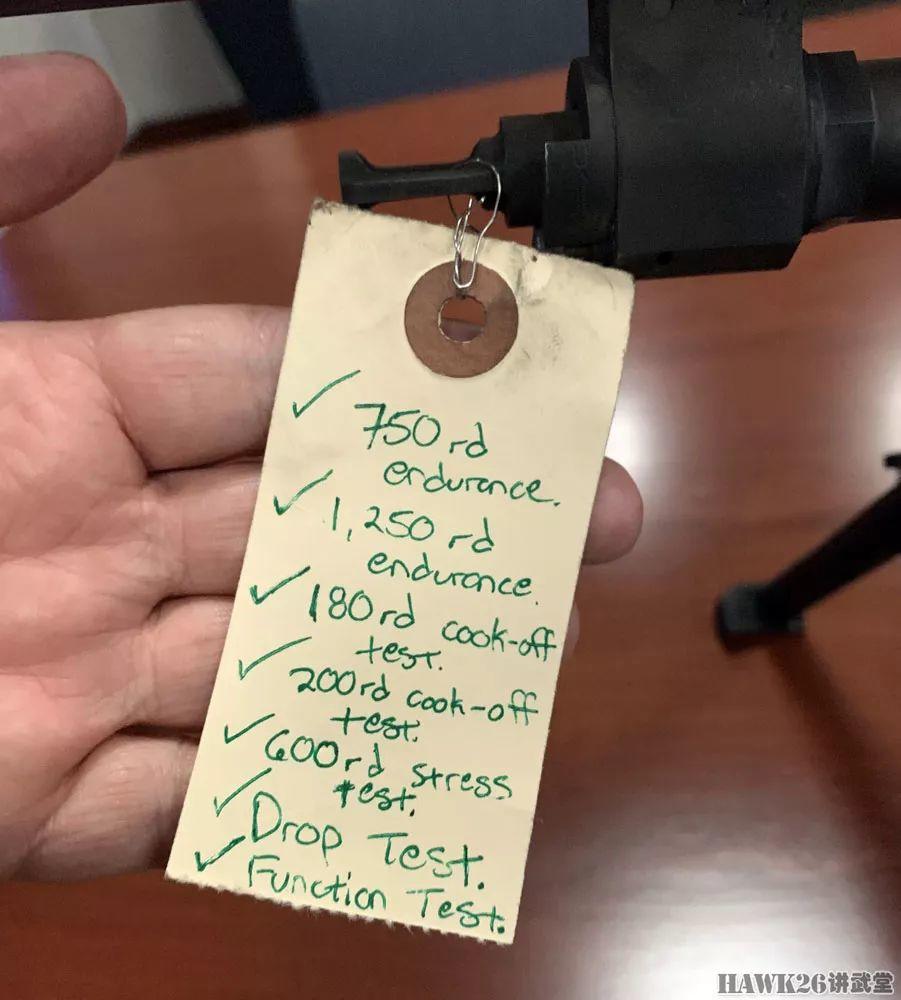 ✓ 750 rd
endurance.
✓ 1,250 rd
endurance.
✓ 180rd cook-off
test.
✓ 200rd cook-off
test.
✓ 600rd stress
test.
✓ Drop Test.
✓ Function Test.
HAWK26讲武堂